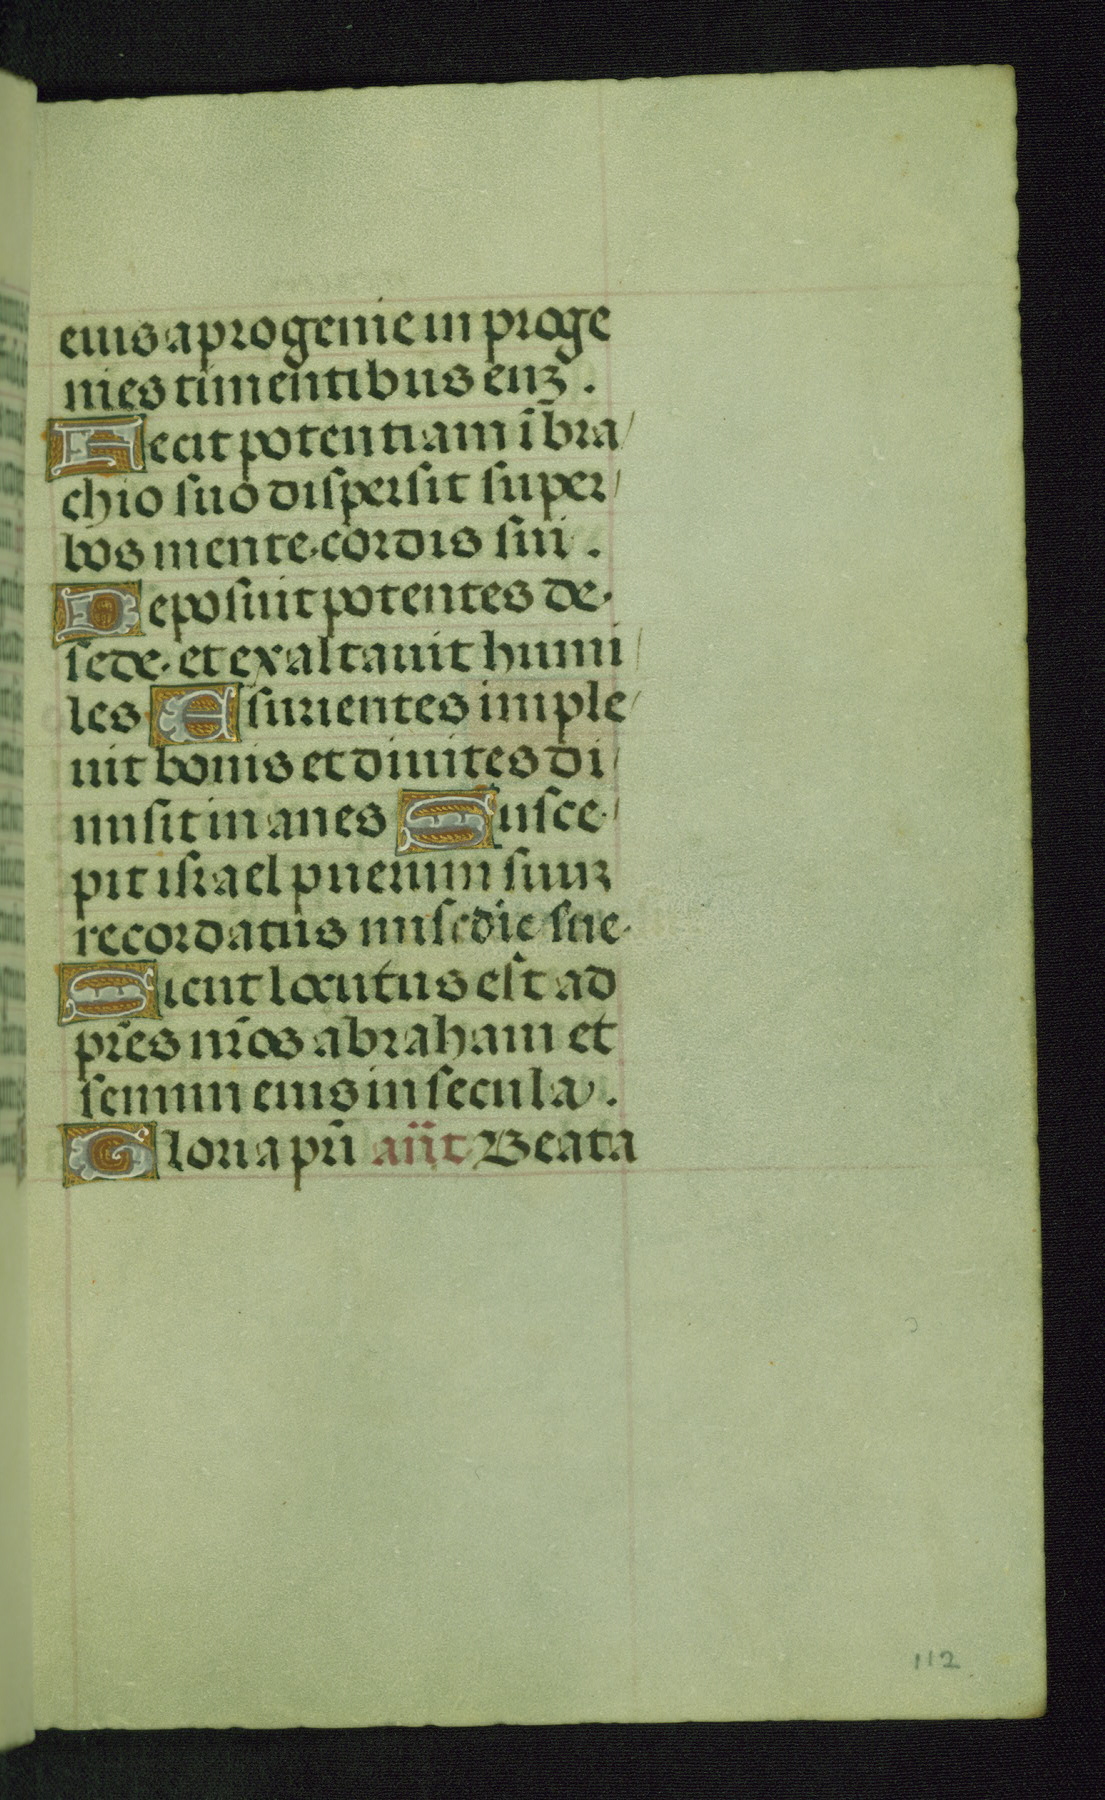 eius a progenie in proge
nies timentibus euꝫ.
Fecit potentiam ī bra
chio suo dispersit super
bos mente cordis sui.
Deposuit potentes de
sede et exaltauit humi
les Esurientes imple
uit bonis et diuites di
misit inanes Susce
pit israel puerum suuꝫ
recordatus misẽdie sue
Sicut locutus est ad
pr̃es nr̃os abraham et
semini eius in secula.
Gloria pr̃i añt Beata
112